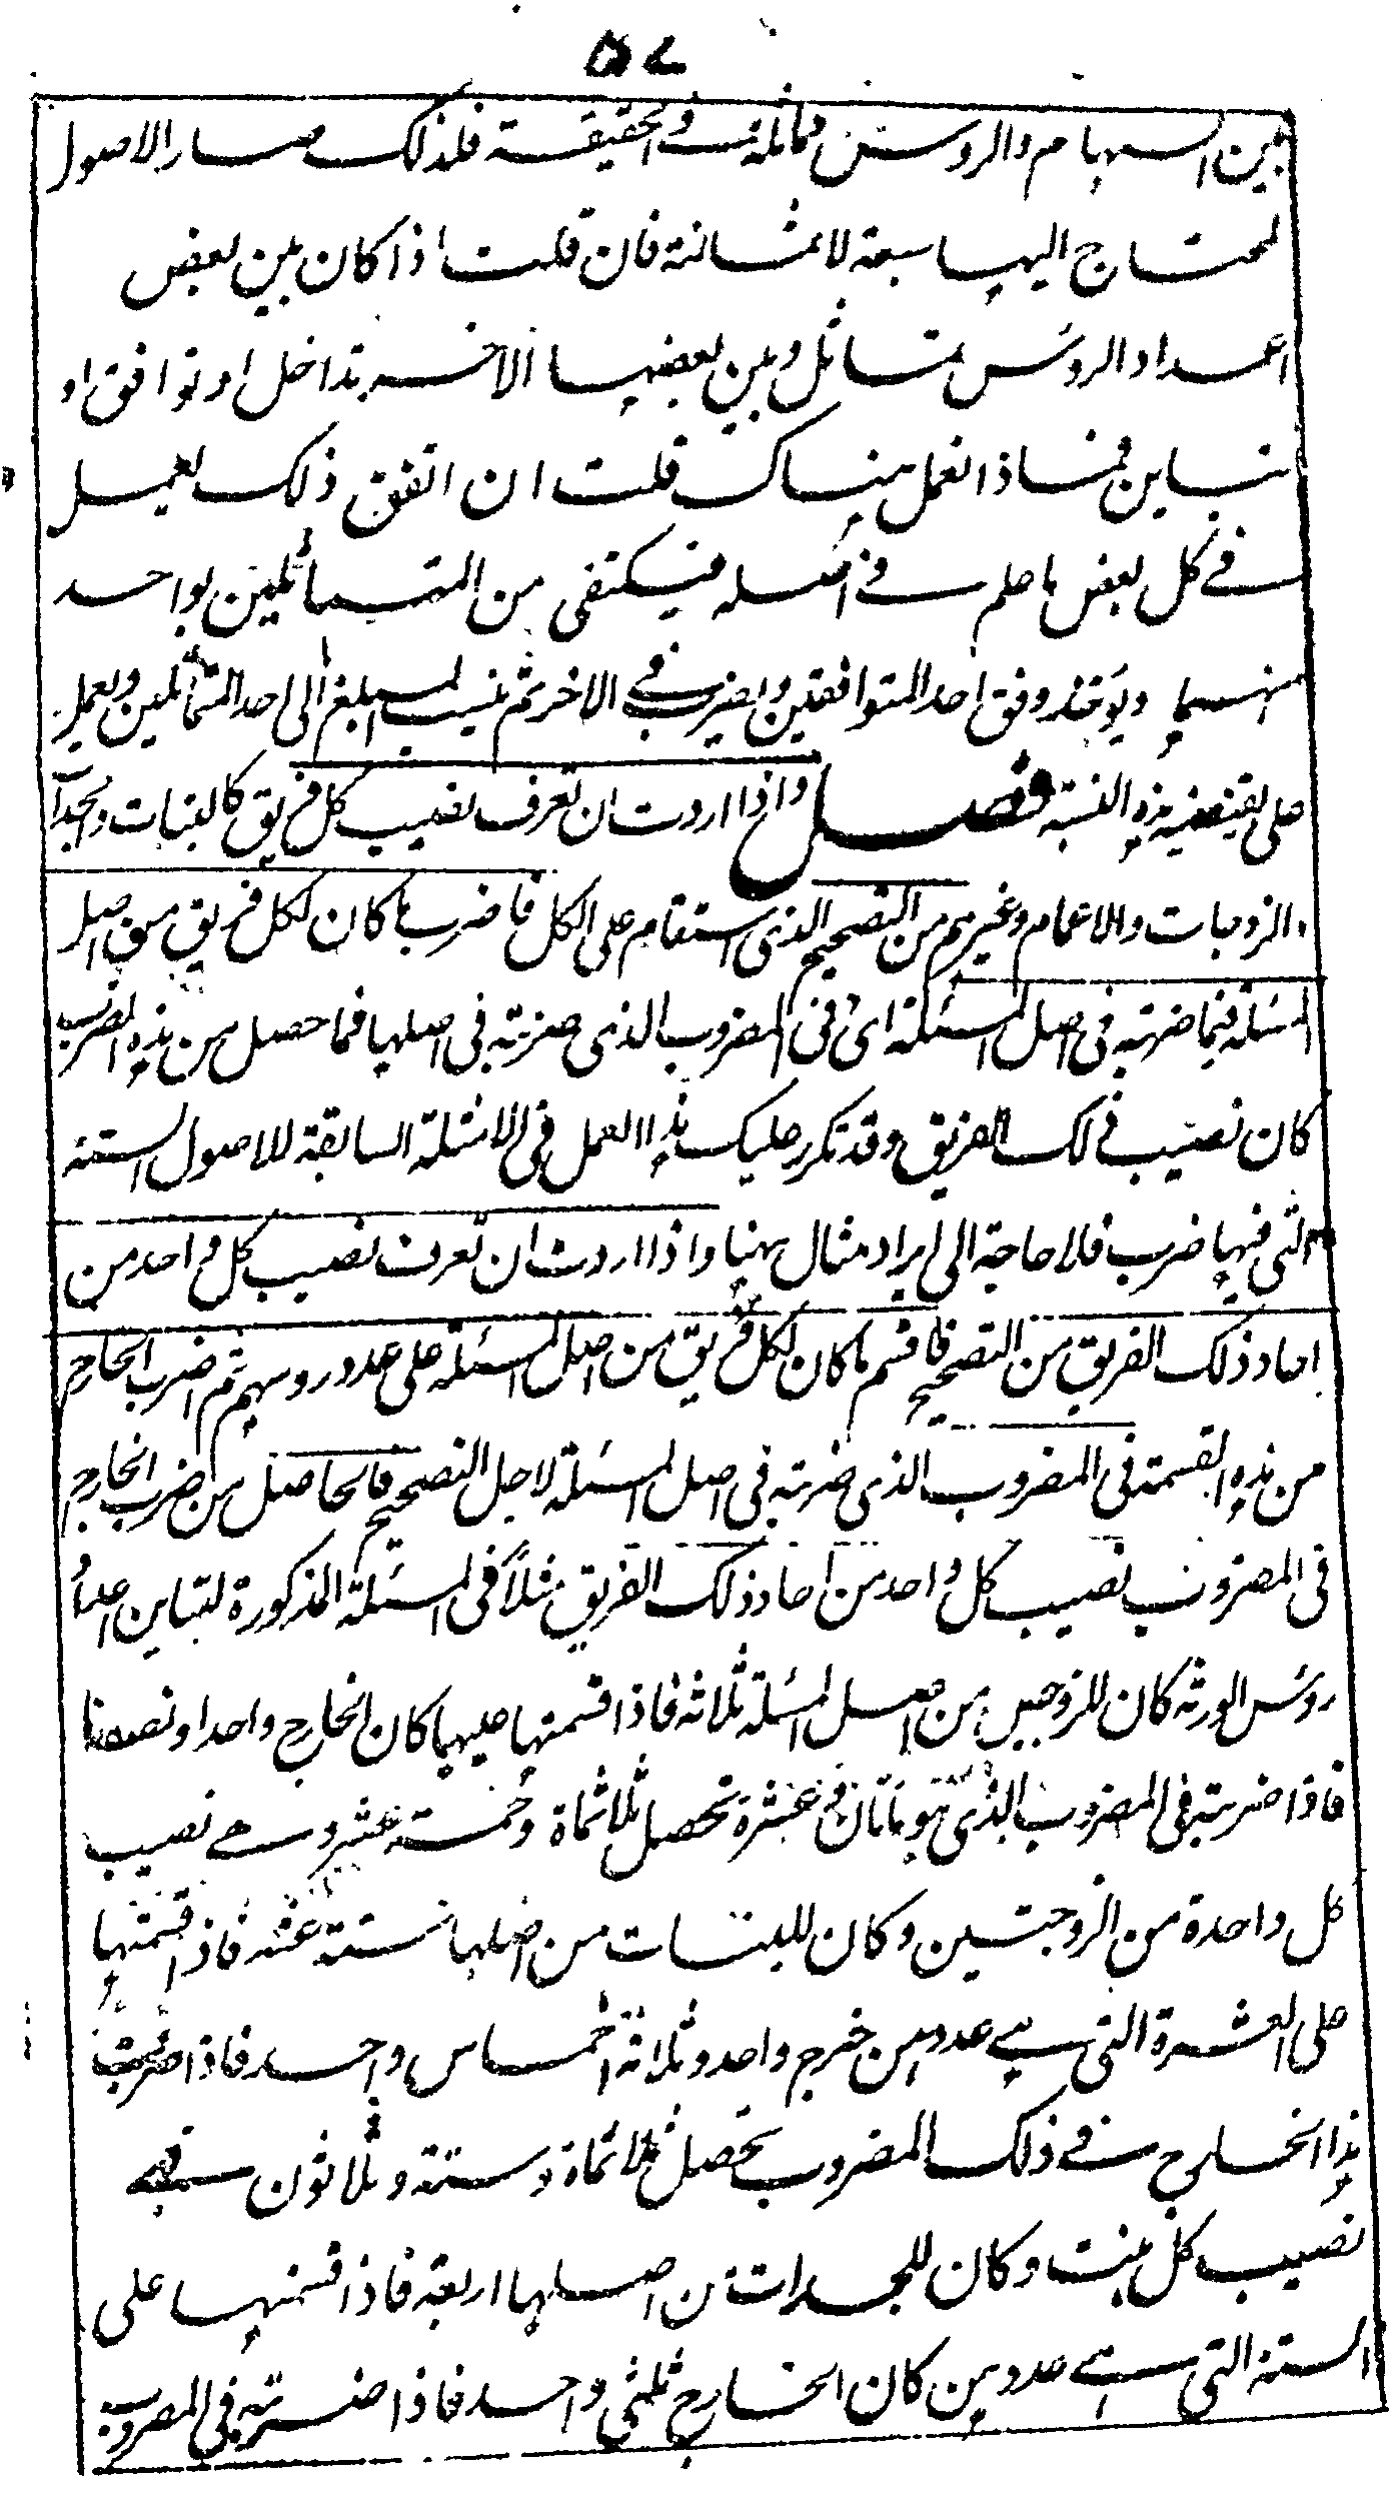 ٥٧
بين السهام والرؤس مماثلة فى الحقيقة فلذلك صار الاصول
المحتاج اليها سبعة لا ثمانية فان قلت اذا كان بين بعض
اعداد الرؤس تماثل وبين بعضها الاخر تداخل او توافق او
تباين فماذا العمل هناك قلت ان اتفق ذلك يعمل
فى كل بعض ما علم فى اصله فيكتفى من المتماثلين بواحد
منهما ويؤخذ وفق احد المتوافقين ويضرب فى الاخر ثم ينسب المبلغ الى احد المتماثلين ويعمل
على ما يقتضيه هذه النسبة فصل واذا اردت ان تعرف نصيب كل فريق كالبنات والجدات
والزوجات والاعمام وغيرهم من التصحيح الذى استقام على الكل فاضرب ما كان لكل فريق من اصل
المسئلة فيما ضربته فى اصل المسئلة اى فى المضروب الذى ضربته فى اصلها فما حصل من هذه الضرب
كان نصيب ذلك الفريق وقد تكرر عليك هذا العمل فى الامثلة السابقة للاصول الستة
التى فيها ضرب فلا حاجة الى ايراد مثال ههنا واذا اردت ان تعرف نصيب كل واحد من
احاد ذلك الفريق من التصحيح فاقسم ما كان لكل فريق من اصل المسئلة على عدد رؤسهم ثم اضرب الخارج
من هذه القسمة فى المضروب الذى ضربته فى اصل المسئلة لاجل التصحيح فالحاصل من ضرب الخارج
فى المضروب نصيب كل واحد من احاد ذلك الفريق مثلاً فى المسئلة المذكورة لتباين اعداد
رؤس الورثة كان للزوجين من اصل المسئلة ثلاثة فاذا قسمتها عليهما كان الخارج واحدا ونصفا
فاذا ضربته فى المضروب الذى هو مائتان و عشرة تحصل ثلاثمائة وخمسة عشر وهى نصيب
كل واحدة من الزوجتين وكان للبنات من اصلها ستة عشر فاذا قسمتها
على العشرة التى هى عددهن خرج واحد وثلاثة اخماس واحد فاذا ضربت
هذا الخارج فى ذلك المضروب يحصل ثلاثمائة وستة وثلاثون فهى
نصيب كل بنت وكان للجدات من اصلها اربعة فاذا قسمتها على
الستة التى هى عددهن كان الخارج ثلثى واحد فاذا ضربته فى المضروب